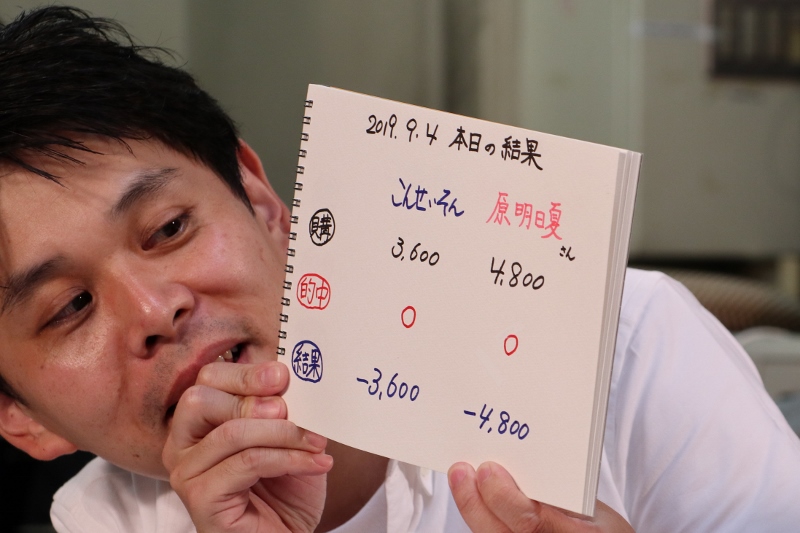 2019.9.4 本日の結果
こんせいそん 原明日夏さん
購 3,600 4,800
的中 0 0
結果 -3,600 -4,800